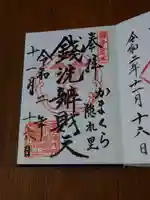 奉拝
かまくら
隠れ里
銭洗辨財天
令和二年
十一月十
令和二年十一月十六日